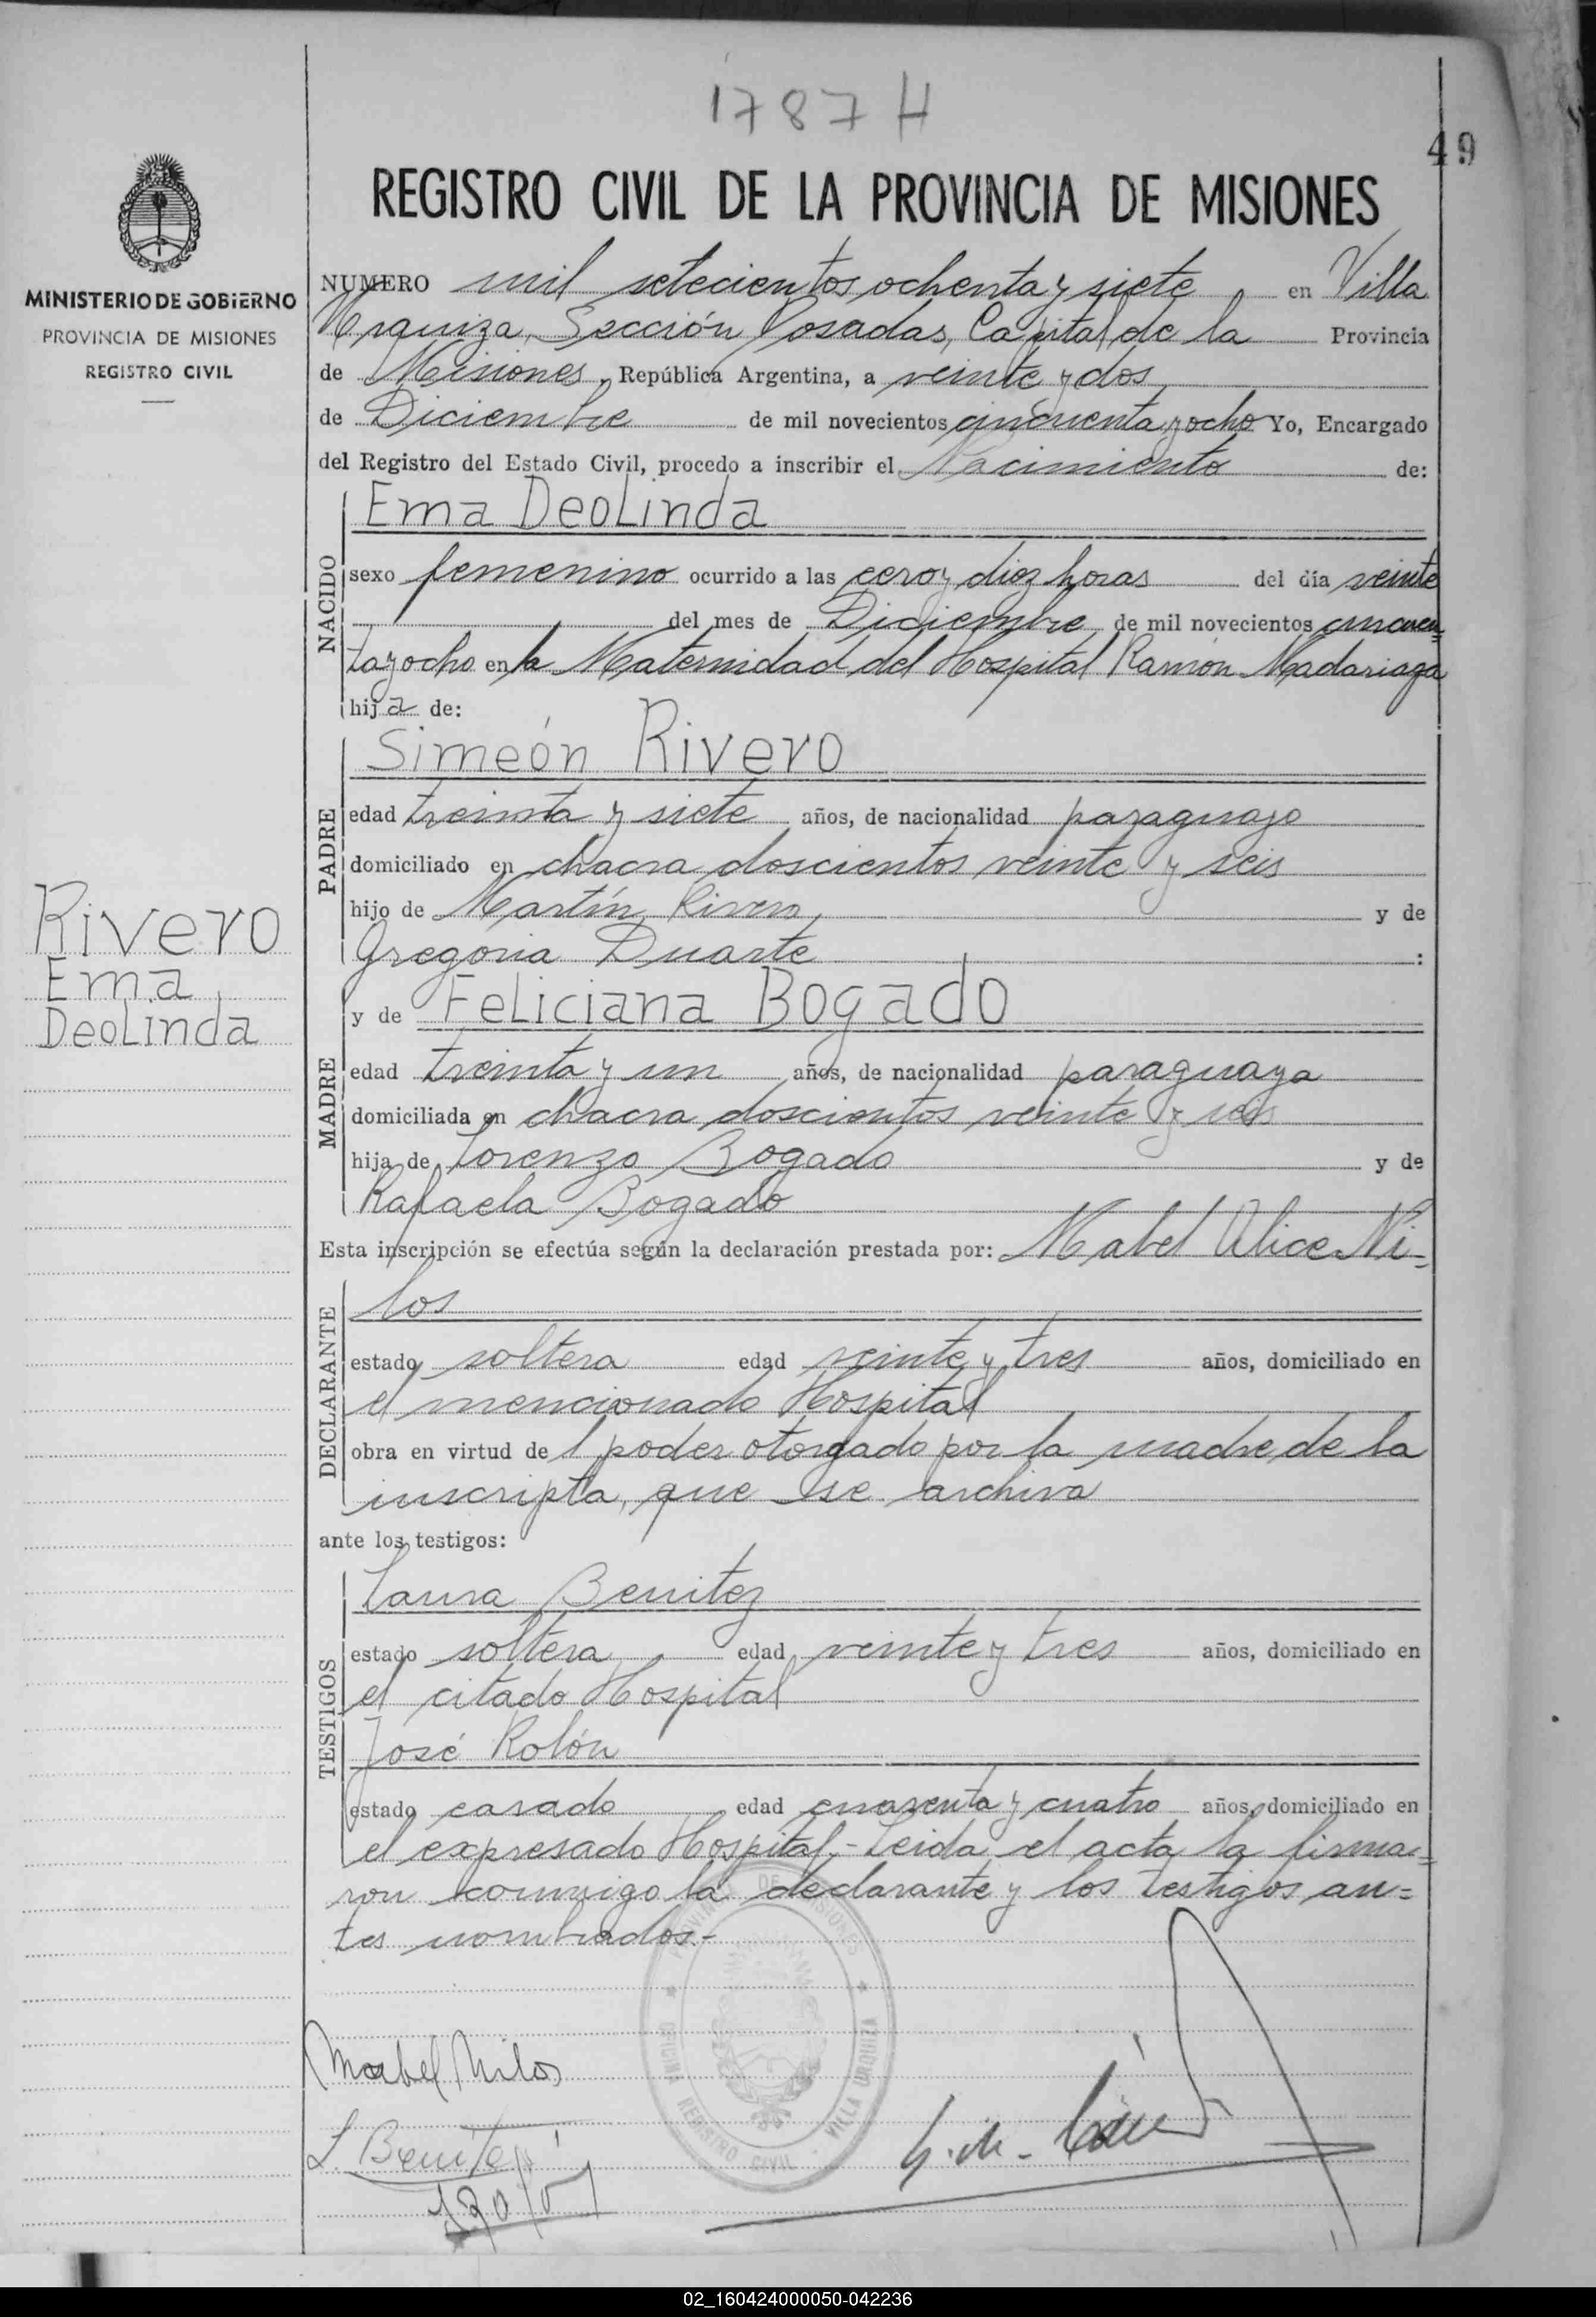 1787 H
49
REGISTRO CIVIL DE LA PROVINCIA DE MISIONES
MINISTERIO DE GOBIERNO
PROVINCIA DE MISIONES
REGISTRO CIVIL
NUMERO mil setecientos ochenta y siete en Villa
Urquiza, Sección Posadas, Capital de la Provincia
de Misiones, República Argentina, a veinte y dos
de Diciembre de mil novecientos cincuenta y ocho Yo, Encargado
del Registro del Estado Civil, procedo a inscribir el Nacimiento de:
NACIDO
Ema Deolinda
sexo femenino ocurrido a las cero y diez horas del día veinte
del mes de Diciembre de mil novecientos cincuen=
ta y ocho en la Maternidad del Hospital Ramón Madariaga
hija de:
PADRE
Simeón Rivero
edad treinta y siete años, de nacionalidad paraguayo
domiciliado en chacra doscientos veinte y seis
hijo de Martín Rivero y de
Gregoria Duarte :
Rivero
Ema
Deolinda
MADRE
y de Feliciana Bogado
edad treinta y un años, de nacionalidad paraguaya
domiciliada en chacra doscientos veinte y seis
hija de Lorenzo Bogado y de
Rafaela Bogado
Esta inscripción se efectúa según la declaración prestada por: Mabel Alice Ni=
DECLARANTE
los
estado soltera edad veinte y tres años, domiciliado en
el mencionado Hospital
obra en virtud del poder otorgado por la madre de la
inscripta, que se archiva
ante los testigos:
TESTIGOS
Laura Benitez
estado soltera edad veinte y tres años, domiciliado en
el citado Hospital
José Rolón
estado casado edad cuarenta y cuatro años, domiciliado en
el expresado Hospital.- Leida el acta la firma=
ron conmigo la declarante y los testigos an=
tes nombrados.-
PROVINCIA DE MISIONES
OFICINA REGISTRO CIVIL - VILLA URQUIZA
Mabel Nilos
L. Benitez
02_160424000050-042236